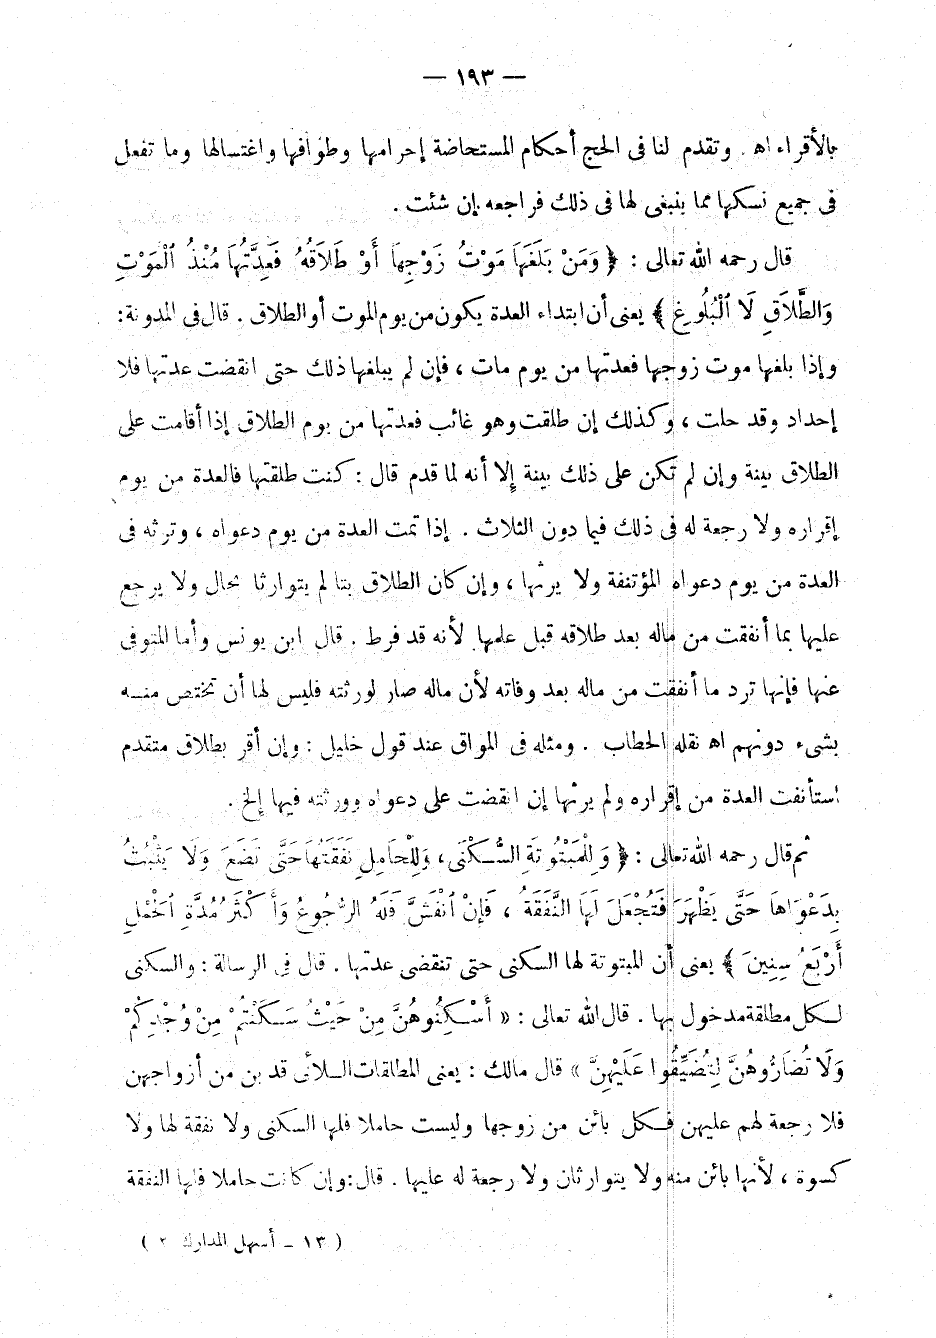 — ١٩٣ —
بالأقراء اه . وتقدم لنا فى الحج أحكام المستحاضة إحرامها وطوافها واغتسالها وما تفعل
فى جميع نسكها مما ينبغى لها فى ذلك فراجعه إن شئت .
قال رحمه الله تعالى : ﴿ وَمَنْ بَلَغَهَا مَوْتُ زَوْجِهَا أَوْ طَلَاقُهُ فَعِدَّتُهَا مُنْذُ الْمَوْتِ
وَالطَّلَاقِ لَا الْبُلُوغِ ﴾ يعنى أن ابتداء العدة يكون من يوم الموت أو الطلاق . قال فى المدونة :
وإذا بلغها موت زوجها فعدتها من يوم مات ، فإن لم يبلغها ذلك حتى انقضت عدتها فلا
إحداد وقد حلت ، وكذلك إن طلقت وهو غائب فعدتها من يوم الطلاق إذا أقامت على
الطلاق بينة وإن لم تكن على ذلك بينة إلا أنه لما قدم قال : كنت طلقتها فالعدة من يوم
إقراره ولا رجعة له فى ذلك فيما دون الثلاث . إذا تمت العدة من يوم دعواه ، وترثه فى
العدة من يوم دعواه المؤتنفة ولا يرثها ، وإن كان الطلاق بتا لم يتوارثا بحال ولا يرجع
عليها بما أنفقت من ماله بعد طلاقه قبل علمها لأنه قد فرط . قال ابن يونس وأما المتوفى
عنها فإنها ترد ما أنفقت من ماله بعد وفاته لأن ماله صار لورثته فليس لها أن تختص منـه
بشىء دونهم اه نقله الحطاب . ومثله فى المواق عند قول خليل : وإن أقر بطلاق متقدم
استأنفت العدة من إقراره ولم يرثها إن انقضت على دعواه وورثته فيها إلخ .
ثم قال رحمه الله تعالى : ﴿ وَلِلْمَبْتُوتَةِ السُّـكْنَى ، وَلِلْحَامِلِ نَفَقَتُهَا حَتَّى تَضَعَ وَلَا يَثْبُتُ
بِدَعْوَاهَا حَتَّى يَظْهَرَ فَتُجْعَلَ لَهَا النَّفَقَةُ ، فَإِنْ انْفَشَّ فَلَهُ الرُّجُوعُ وَأَكْثَرُ مُدَّةِ الْحَمْلِ
أَرْبَعُ سِنِينَ ﴾ يعنى أن المبتوتة لها السكنى حتى تنقضى عدتها . قال فى الرسالة : والسكنى
لـكل مطلقة مدخول بها . قال الله تعالى : « أَسْـكِنُوهُنَّ مِنْ حَيْثُ سَـكَنْتُمْ مِنْ وُجْدِكُمْ
وَلَا تُضَارُّوهُنَّ لِتُضَيِّقُوا عَلَيْهِنَّ » قال مالك : يعنى المطلقات الـلائى قد بن من أزواجهن
فلا رجعة لهم عليهن فـكل بائن من زوجها وليست حاملا فلها السكنى ولا نفقة لها ولا
كسوة ، لأنها بائن منه ولا يتوارثان ولا رجعة له عليها . قال : وإن كانت حاملا فلها النفقة
( ١٣ - أسهل المدارك ٢ )